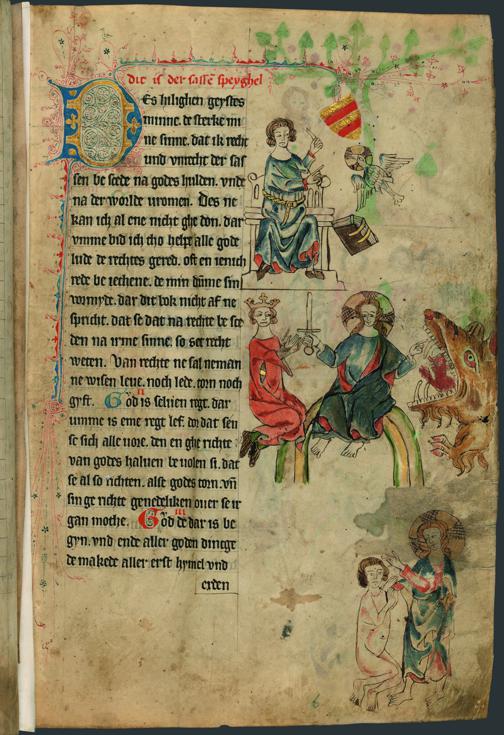 dit is der sasse speyghel
Es hilighen geystes
minne. de sterke mi
ne sinne. dat ik recht
vnd vnrecht der sas
sen be scede na godes hulden. vnde
na der worlde vromen. Des ne
kan ich al ene nicht ghe don. dar
vmme bid ich tho helpe alle gode
lude de rechtes gered. oft en ienich
rede be ieghene. de min dumme sin
vormyde. dar dit bok nicht af ne
spricht. dat se dat na rechte be sce
den na irme sinne. so set recht
weten. Van rechte ne sal neman
ne wisen leue. noch lede. torn noch
gyft. God is selven regt. dar
vmme is eme regt lef. do dat sen
se sich alle vore. den en ghe richte
van godes haluen be uolen si. dat
se al so richten. alse godes torn. vn
sin ge richte genedeliken ouer se ir
gan moghe. God de dar is be
gyn. vnd ende aller goden dinege
de makede aller erst hymel vnd
erden